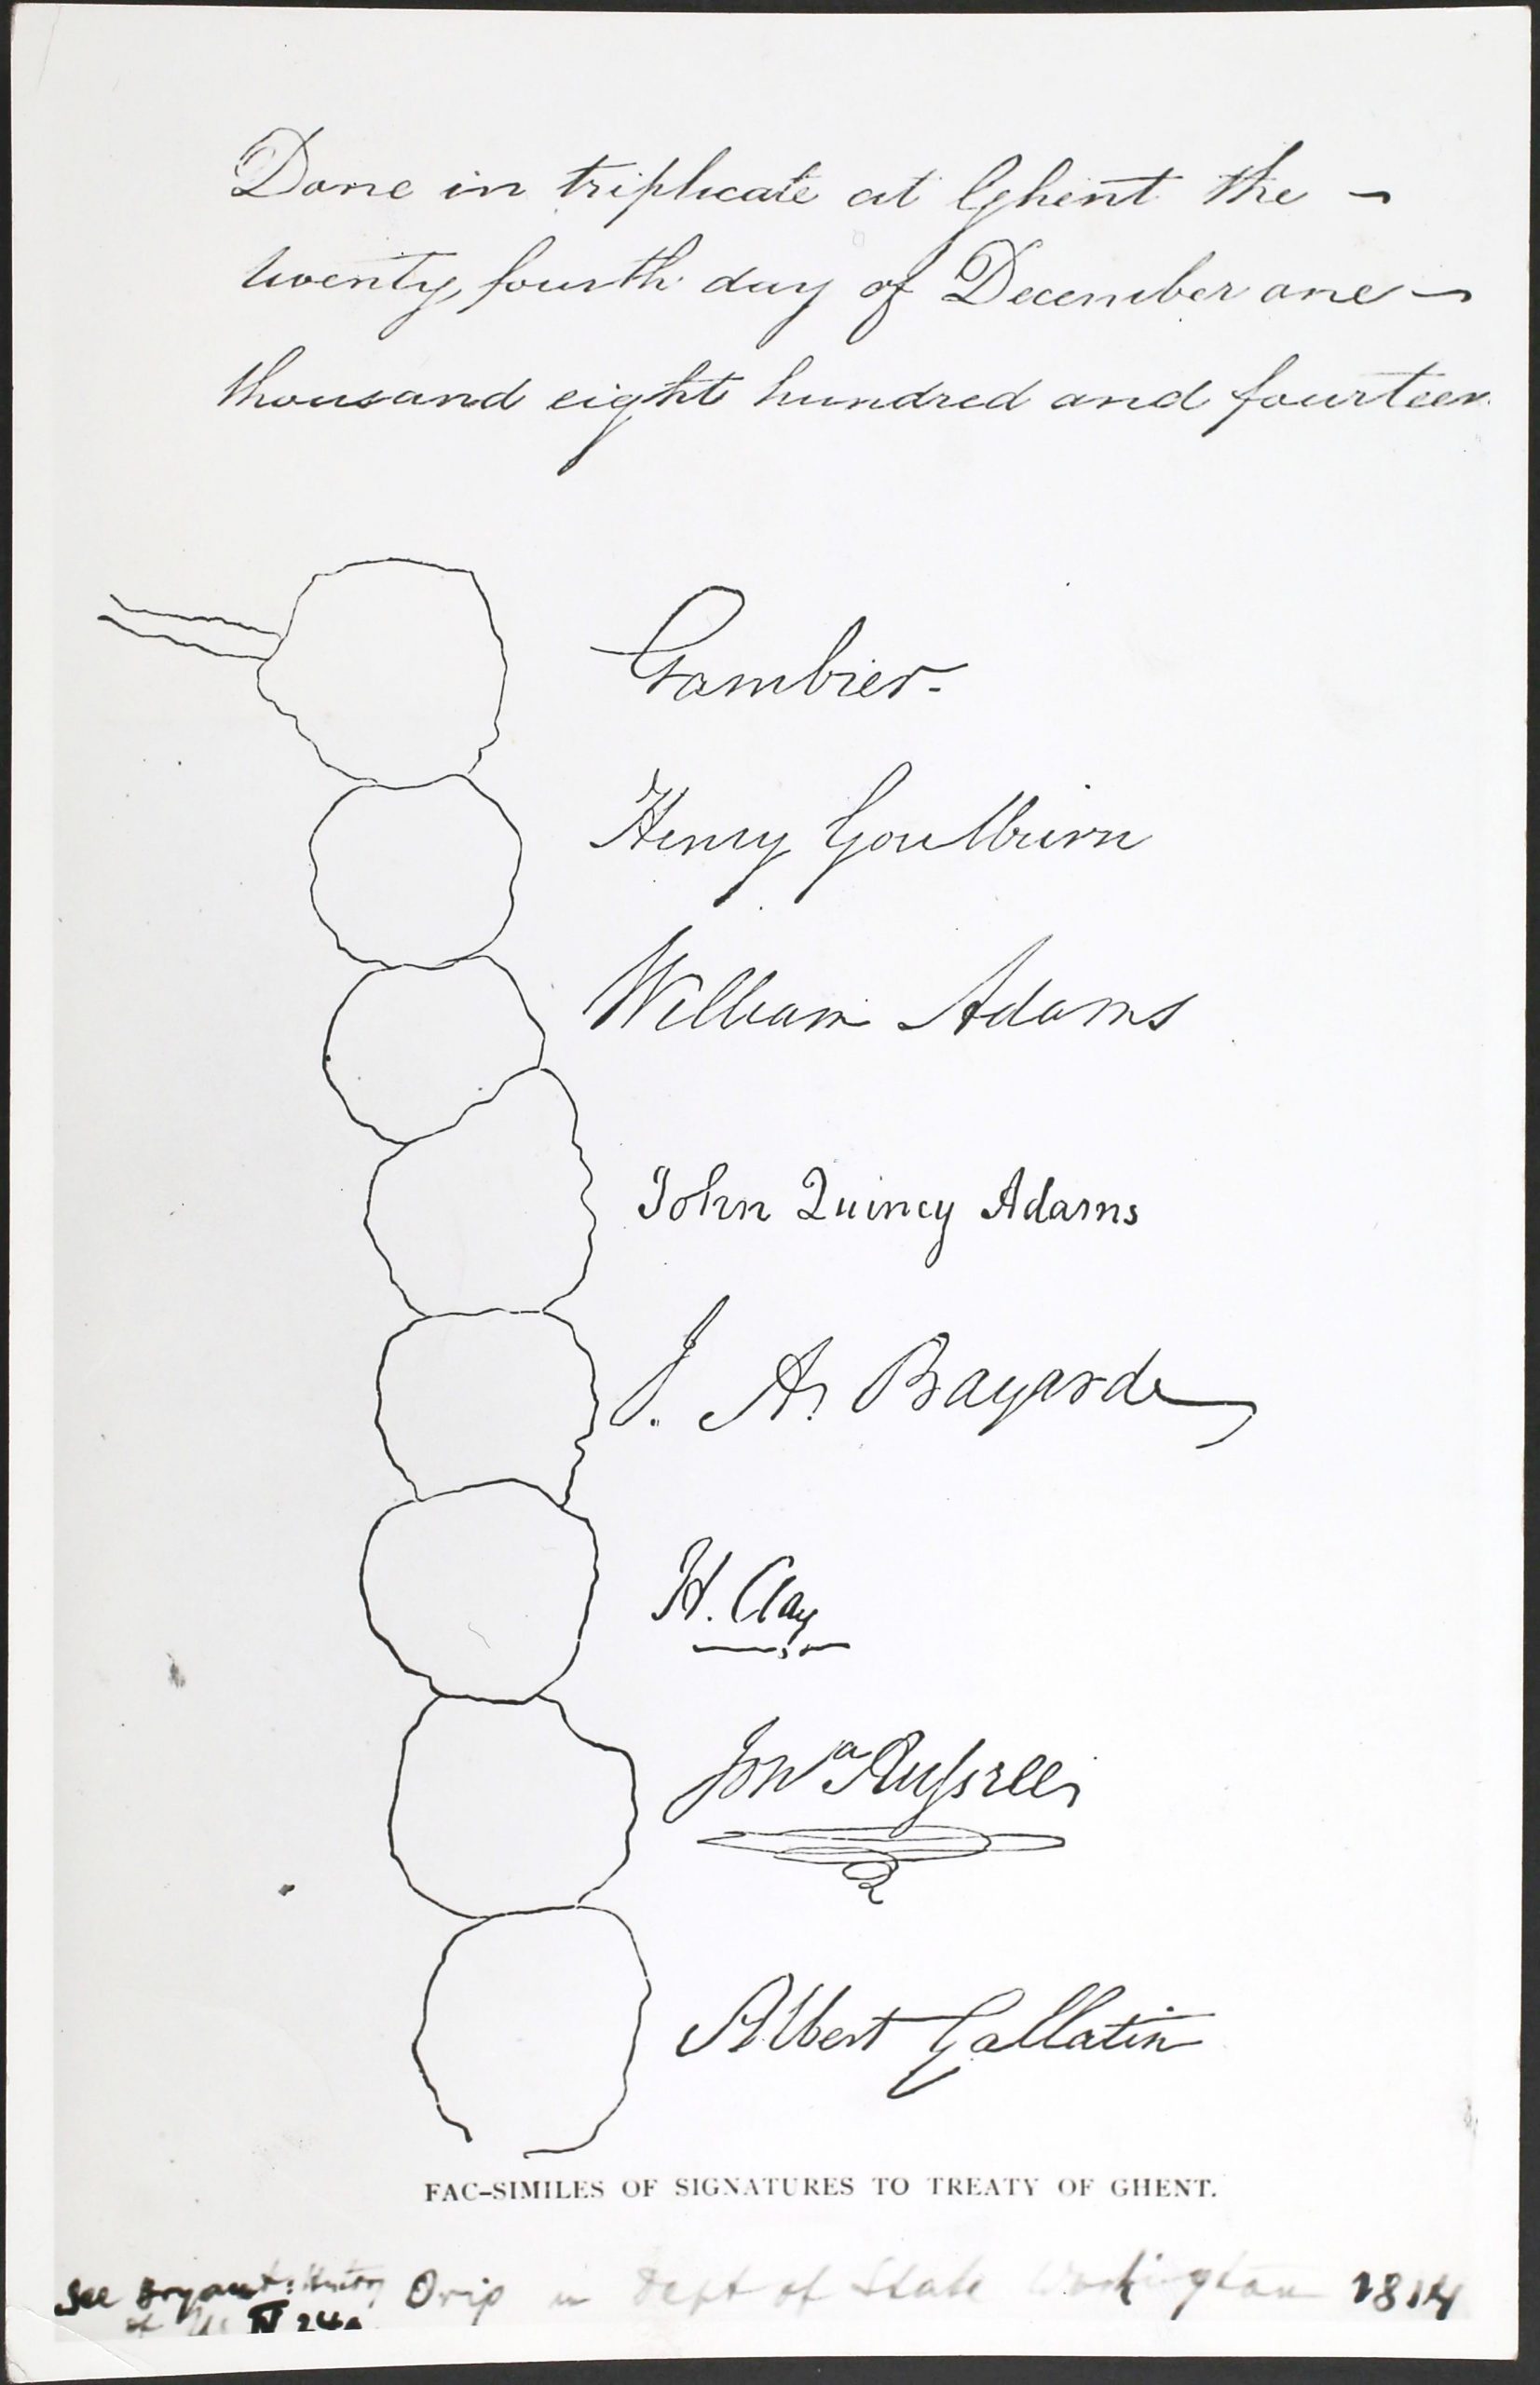 Done in triplicate at Ghent the
twenty fourth day of December one
thousand eight hundred and fourteen.
Gambier.
Henry Goulburn
William Adams
John Quincy Adams
J. A. Bayard
H. Clay
Jonª Russell
Albert Gallatin
FAC-SIMILES OF SIGNATURES TO TREATY OF GHENT.
See Bryant's History Orig in Dept of State Washington 1814
IV